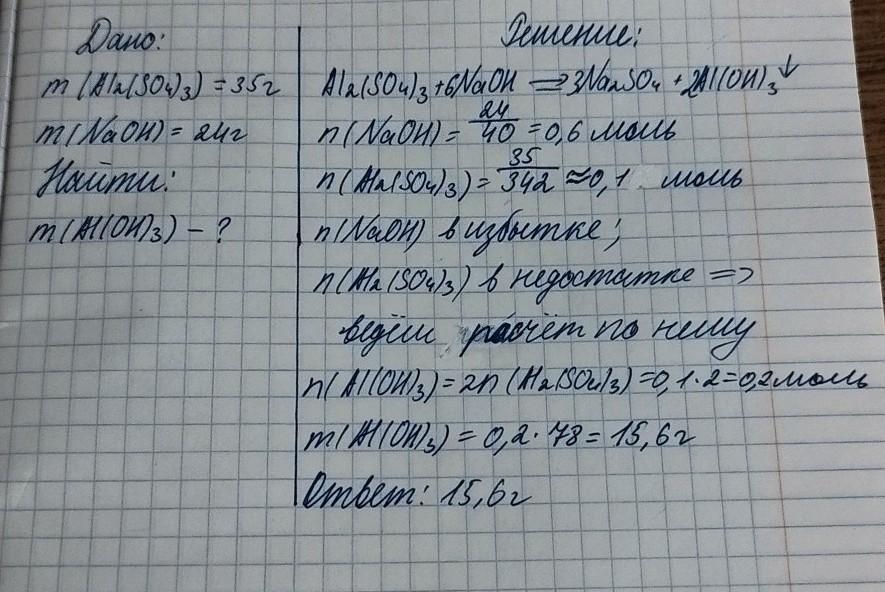 Дано:
m(Al₂(SO₄)₃) = 35г
m(NaOH) = 24г
Найти:
m(Al(OH)₃) – ?
Решение:
Al₂(SO₄)₃ + 6NaOH ⟹ 3Na₂SO₄ + 2Al(OH)₃↓
n(NaOH) = 24/40 = 0,6 моль
n(Al₂(SO₄)₃) = 35/342 ≈ 0,1 моль
n(NaOH) в избытке;
n(Al₂(SO₄)₃) в недостатке =>
ведём расчёт по нему
n(Al(OH)₃) = 2n(Al₂(SO₄)₃) = 0,1·2 = 0,2моль
m(Al(OH)₃) = 0,2·78 = 15,6г
Ответ: 15,6г